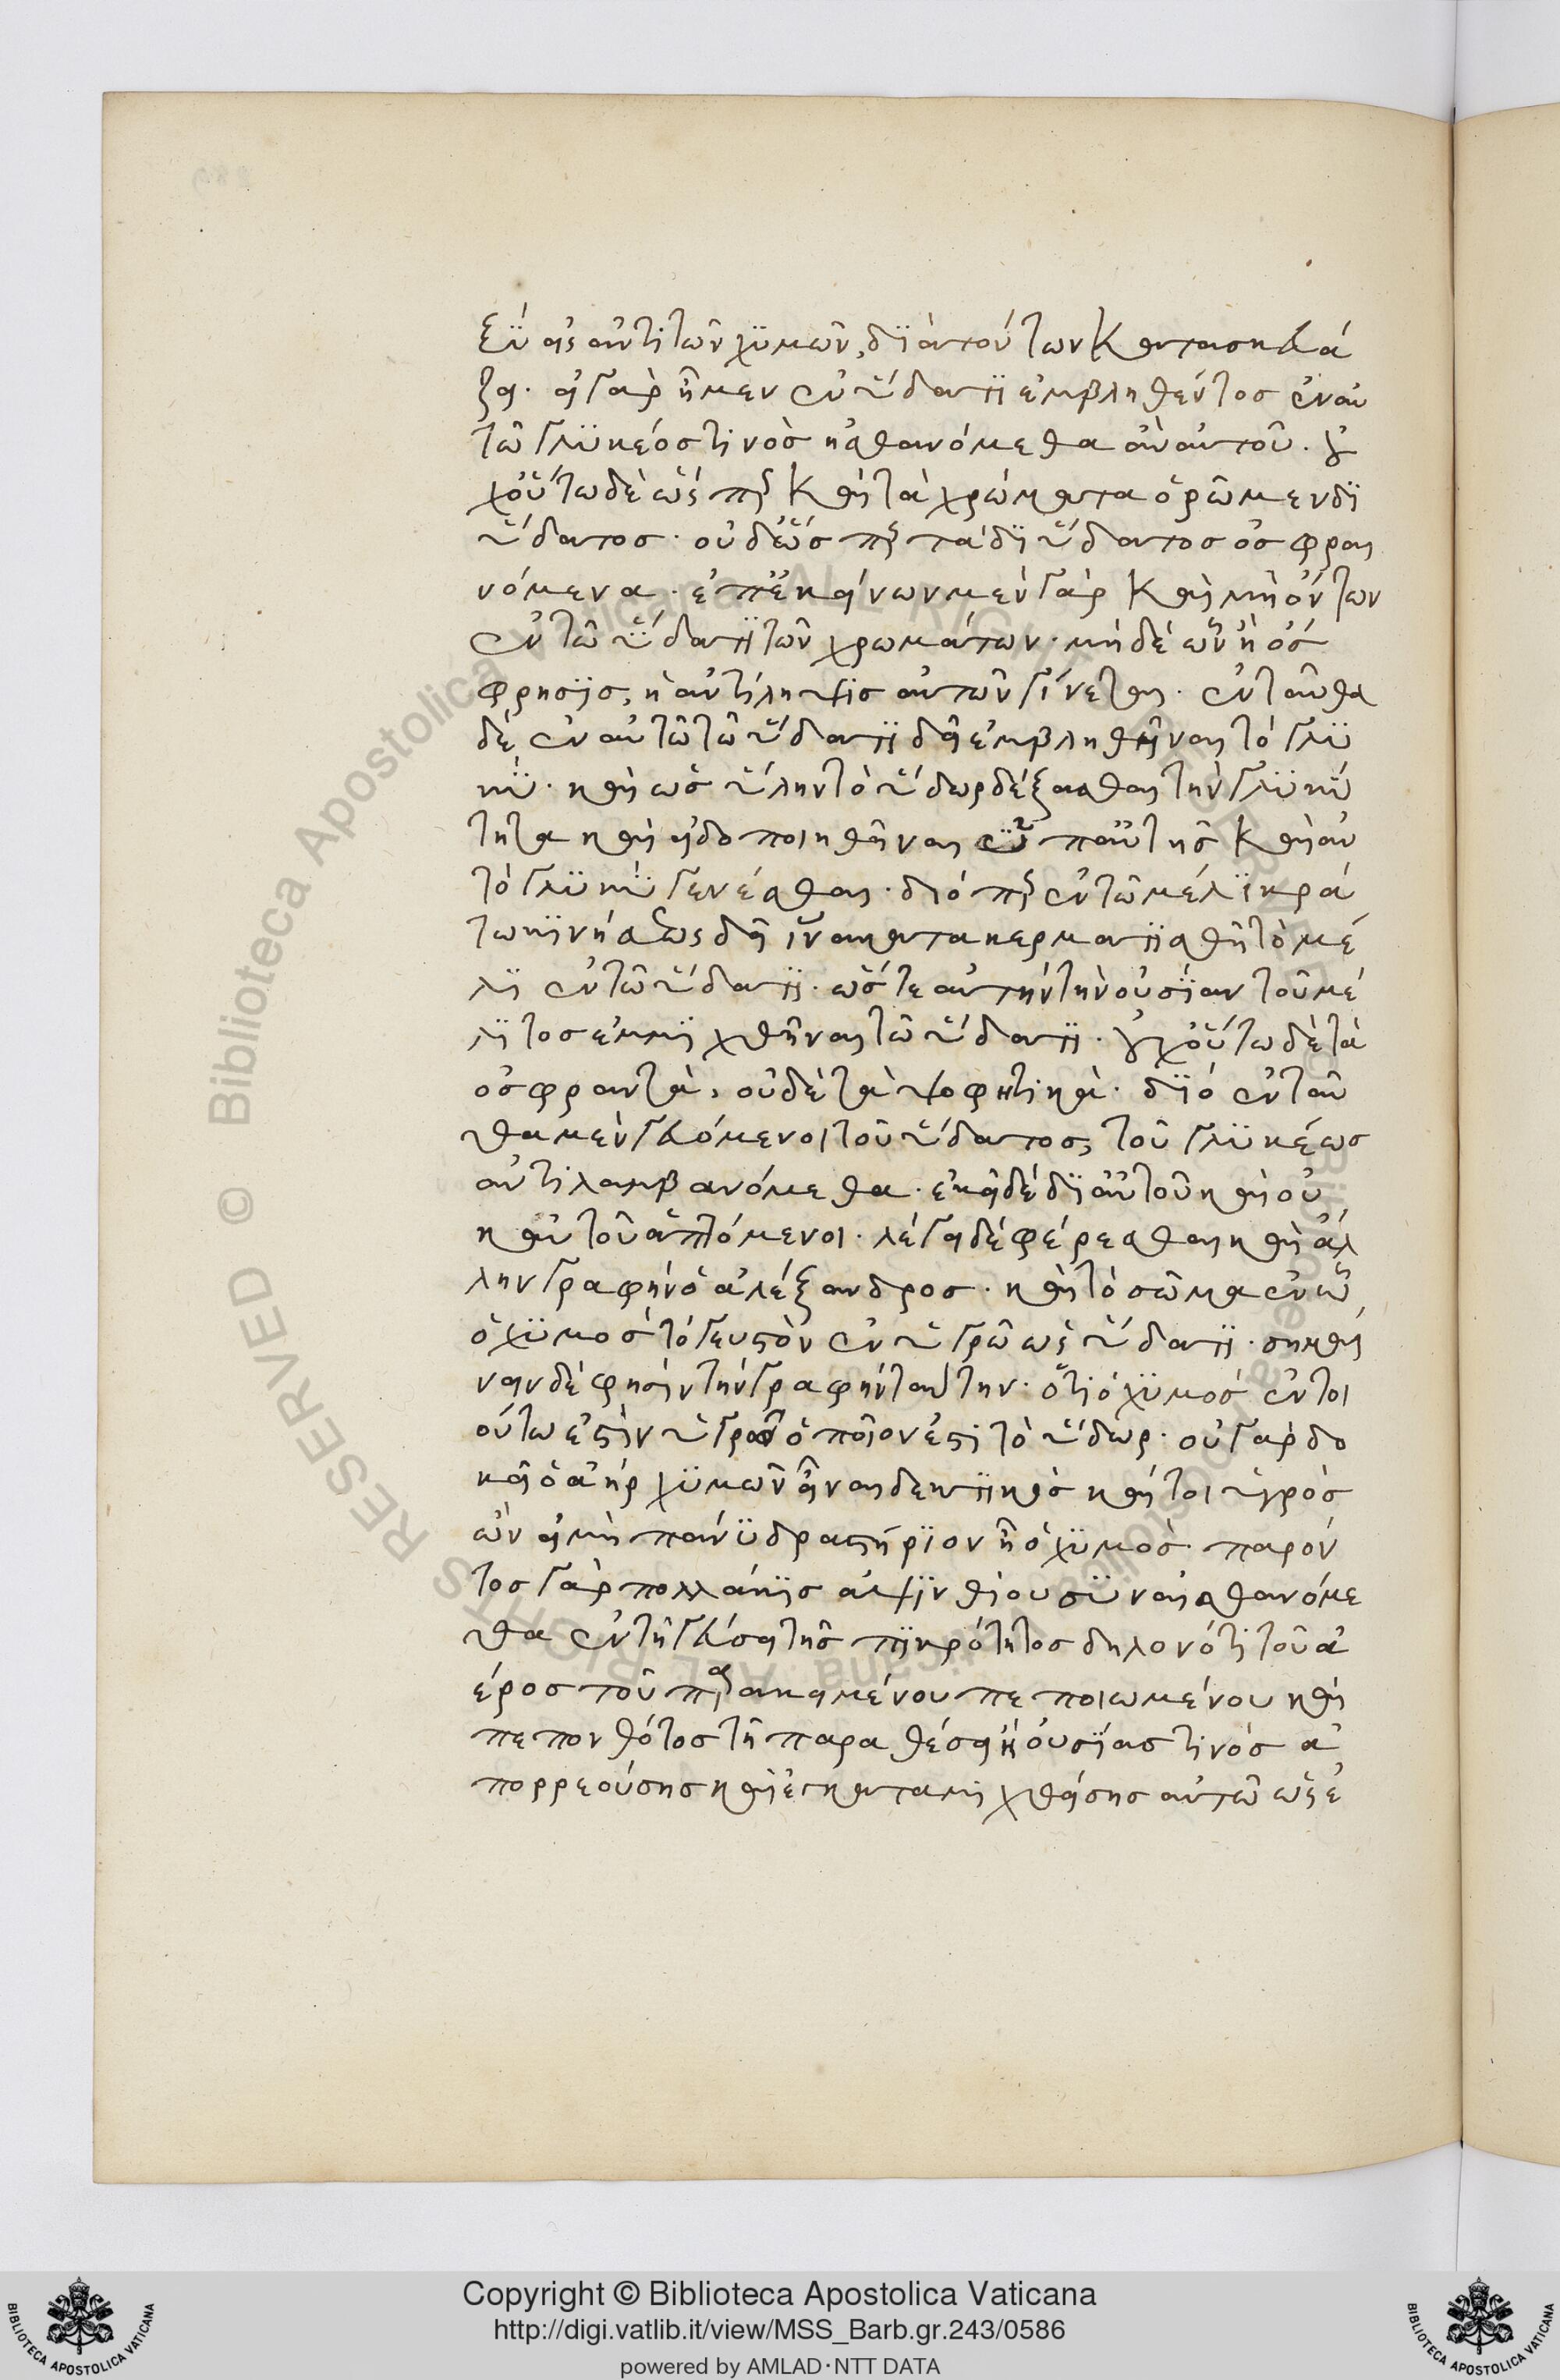 ξὺ εἰς ἀντὶ τῶν χϋμῶν, δϊὰ τούτων κατασκευά
ζει. εἰ γὰρ ἦμεν ἐν ὕδατϊ ἐμβληθέντος ἐν αὐ
τῶ γλϋκέος τινὸς ἠσθανόμεθα ἂν αὐτοῦ. οὐ
χ οὕτω δὲ ὥσπερ καὶ τὰ χρώματα ὁρῶμεν δϊ
ὕδατος. οὐδ ὥσπερ τὰ δϊ ὕδατος ὀσφραι
νόμενα. ἐπ ἐκείνων μὲν γὰρ καὶ μὴ ὄντων
ἐν τῶ ὕδατϊ τῶν χρωμάτων. μηδὲ ὧν ἡ ὄσ
φρησϊς, ἡ ἀντίληψϊς αὐτῶν γίνεται. ἐνταῦθα
δὲ ἐν αὐτῶ τῶ ὕδατϊ δεῖ ἐμβληθῆναι τὸ γλϋ
κϋ. καὶ ὡς ὕλην τὸ ὕδωρ δέξασθαι τὴν γλϋκύ
τητα καὶ εἰδοποιηθῆναι ὑπ αὐτῆς καὶ αὐ
τὸ γλϋκϋ γενέσθαι. διόπερ ἐν τῶ μέλϊκρά
τω κϊνήσεως δεῖ ἵνα κατακερματϊσθῆ τὸ μέ
λϊ ἐν τῶ ὕδατϊ. ὥστε αὐτὴν τὴν οὐσϊαν τοῦ μέ
λϊτος ἐμμϊχθῆναι τῶ ὕδατϊ. οὐχ οὕτω δὲ τὰ
ὀσφραντὰ, οὐδὲ τὰ ψοφητικὰ. δϊὸ ἐνταῦ
θα μὲν γευόμενοι τοῦ ὕδατος, τοῦ γλϋκέως
ἀντιλαμβανόμεθα. ἐκεῖ δὲ δϊ αὐτοῦ καὶ οὐ
κ αὐτοῦ ἁπτόμενοι. λέγει δὲ φέρεσθαι καὶ ἄλ
λην γραφὴν ὁ ἀλέξανδρος. καὶ τὸ σῶμα ἐν ὧ
ὁ χϋμὸς τὸ γευστὸν ἐν ὑγρῶ ὡς ὕδατϊ. σημαί
νειν δὲ φησὶν τὴν γραφὴν ταύτην. ὅτι ὁ χϋμός ἐν τοι
ούτω ἐστὶν ὑγρῶ ὁποῖον ἐστὶ τὸ ὕδωρ. οὐ γὰρ δο
κεῖ ὁ ἀὴρ χϋμῶν εἶναι δεκτϊκὸς καὶ τοι ὑγρὸς
ὢν εἰ μὴ πάνϋ δραστήρϊον ἦ ὁ χϋμὸς. παρόν
τος γὰρ πολλάκϊς ἀψϊνθίου σϋναισθανόμε
θα ἐν τῆ γεύσει τῆς πϊκρότητος δηλονότι τοῦ ἀ
έρος τοῦ παρακειμένου πεποιωμένου καὶ
πεπονθότος τῆ παραθέσει ἢ οὐσϊας τινὸς ἀ
πορρεούσης καὶ ἐγκαταμϊχθείσης αὐτῶ ὡς ἐ
Copyright © Biblioteca Apostolica Vaticana
http://digi.vatlib.it/view/MSS_Barb.gr.243/0586
powered by AMLAD·NTT DATA